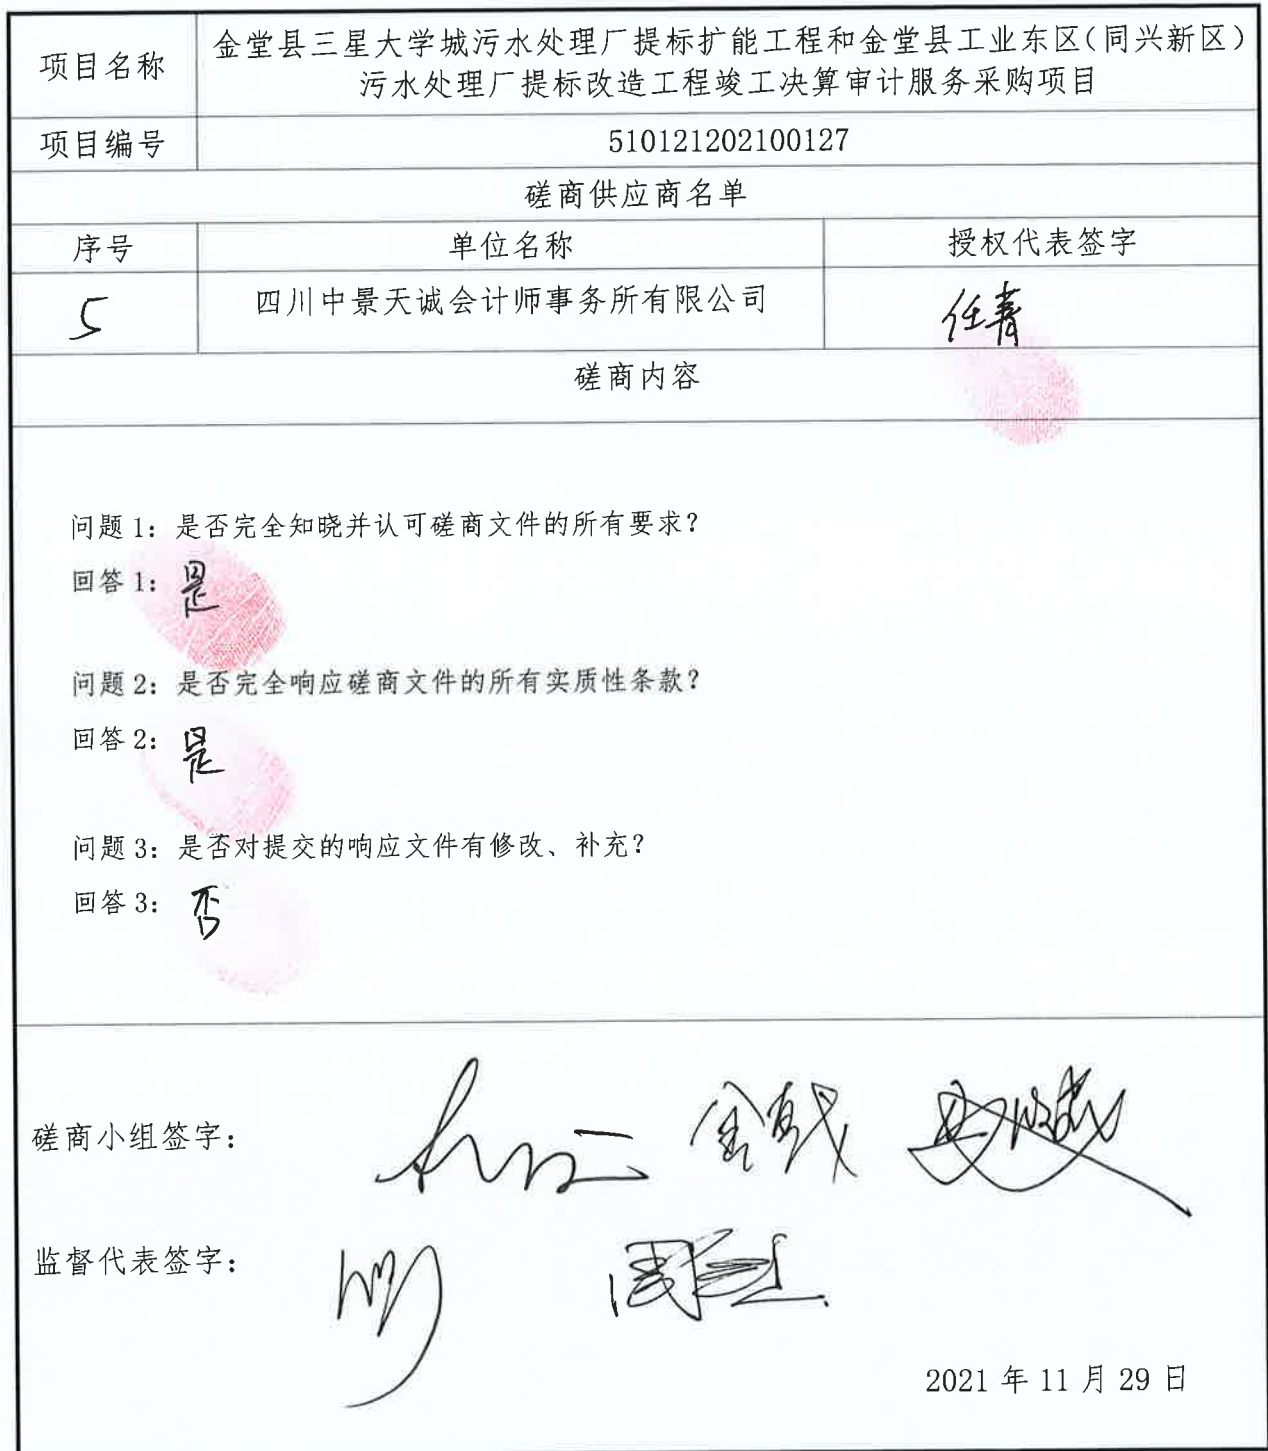 项目名称
金堂县三星大学城污水处理厂提标扩能工程和金堂县工业东区(同兴新区)
污水处理厂提标改造工程竣工决算审计服务采购项目
项目编号
510121202100127
磋商供应商名单
序号 单位名称 授权代表签字
5 四川中景天诚会计师事务所有限公司 任青
磋商内容
问题1：是否完全知晓并认可磋商文件的所有要求？
回答1：是
问题2：是否完全响应磋商文件的所有实质性条款？
回答2：是
问题3：是否对提交的响应文件有修改、补充？
回答3：否
磋商小组签字：
监督代表签字：
2021年11月29日